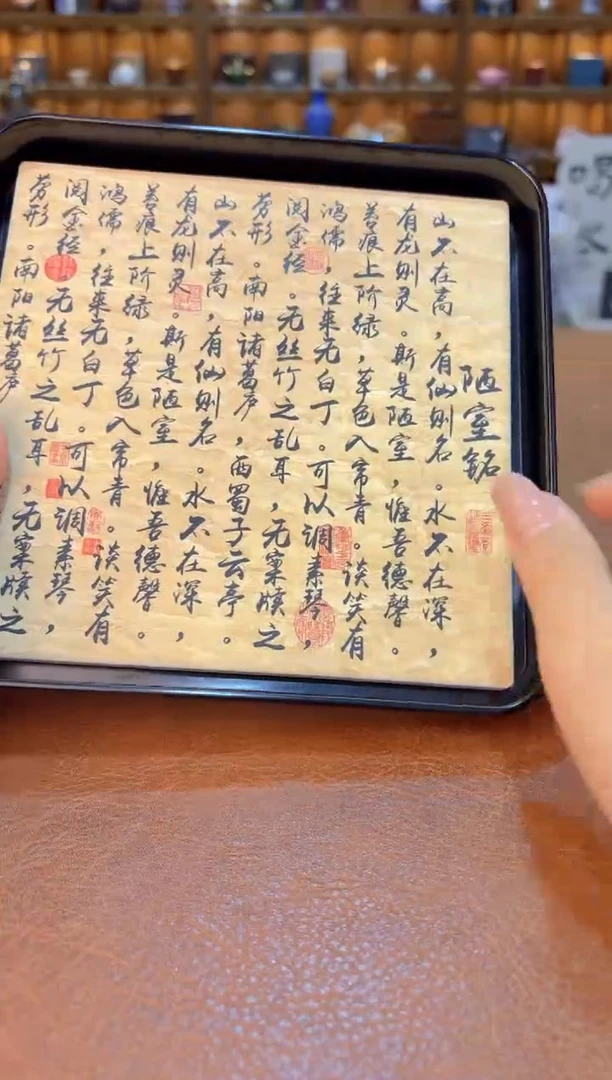 陋室铭
山不在高，有仙则名。水不在深，
有龙则灵。斯是陋室，惟吾德馨。
苔痕上阶绿，草色入帘青。谈笑有
鸿儒，往来无白丁。可以调素琴，
阅金经。无丝竹之乱耳，无案牍之
劳形。南阳诸葛庐，西蜀子云亭。
山不在高，有仙则名。水不在深，
有龙则灵。斯是陋室，惟吾德馨。
苔痕上阶绿，草色入帘青。谈笑有
鸿儒，往来无白丁。可以调素琴，
阅金经。无丝竹之乱耳，无案牍之
劳形。南阳诸葛庐